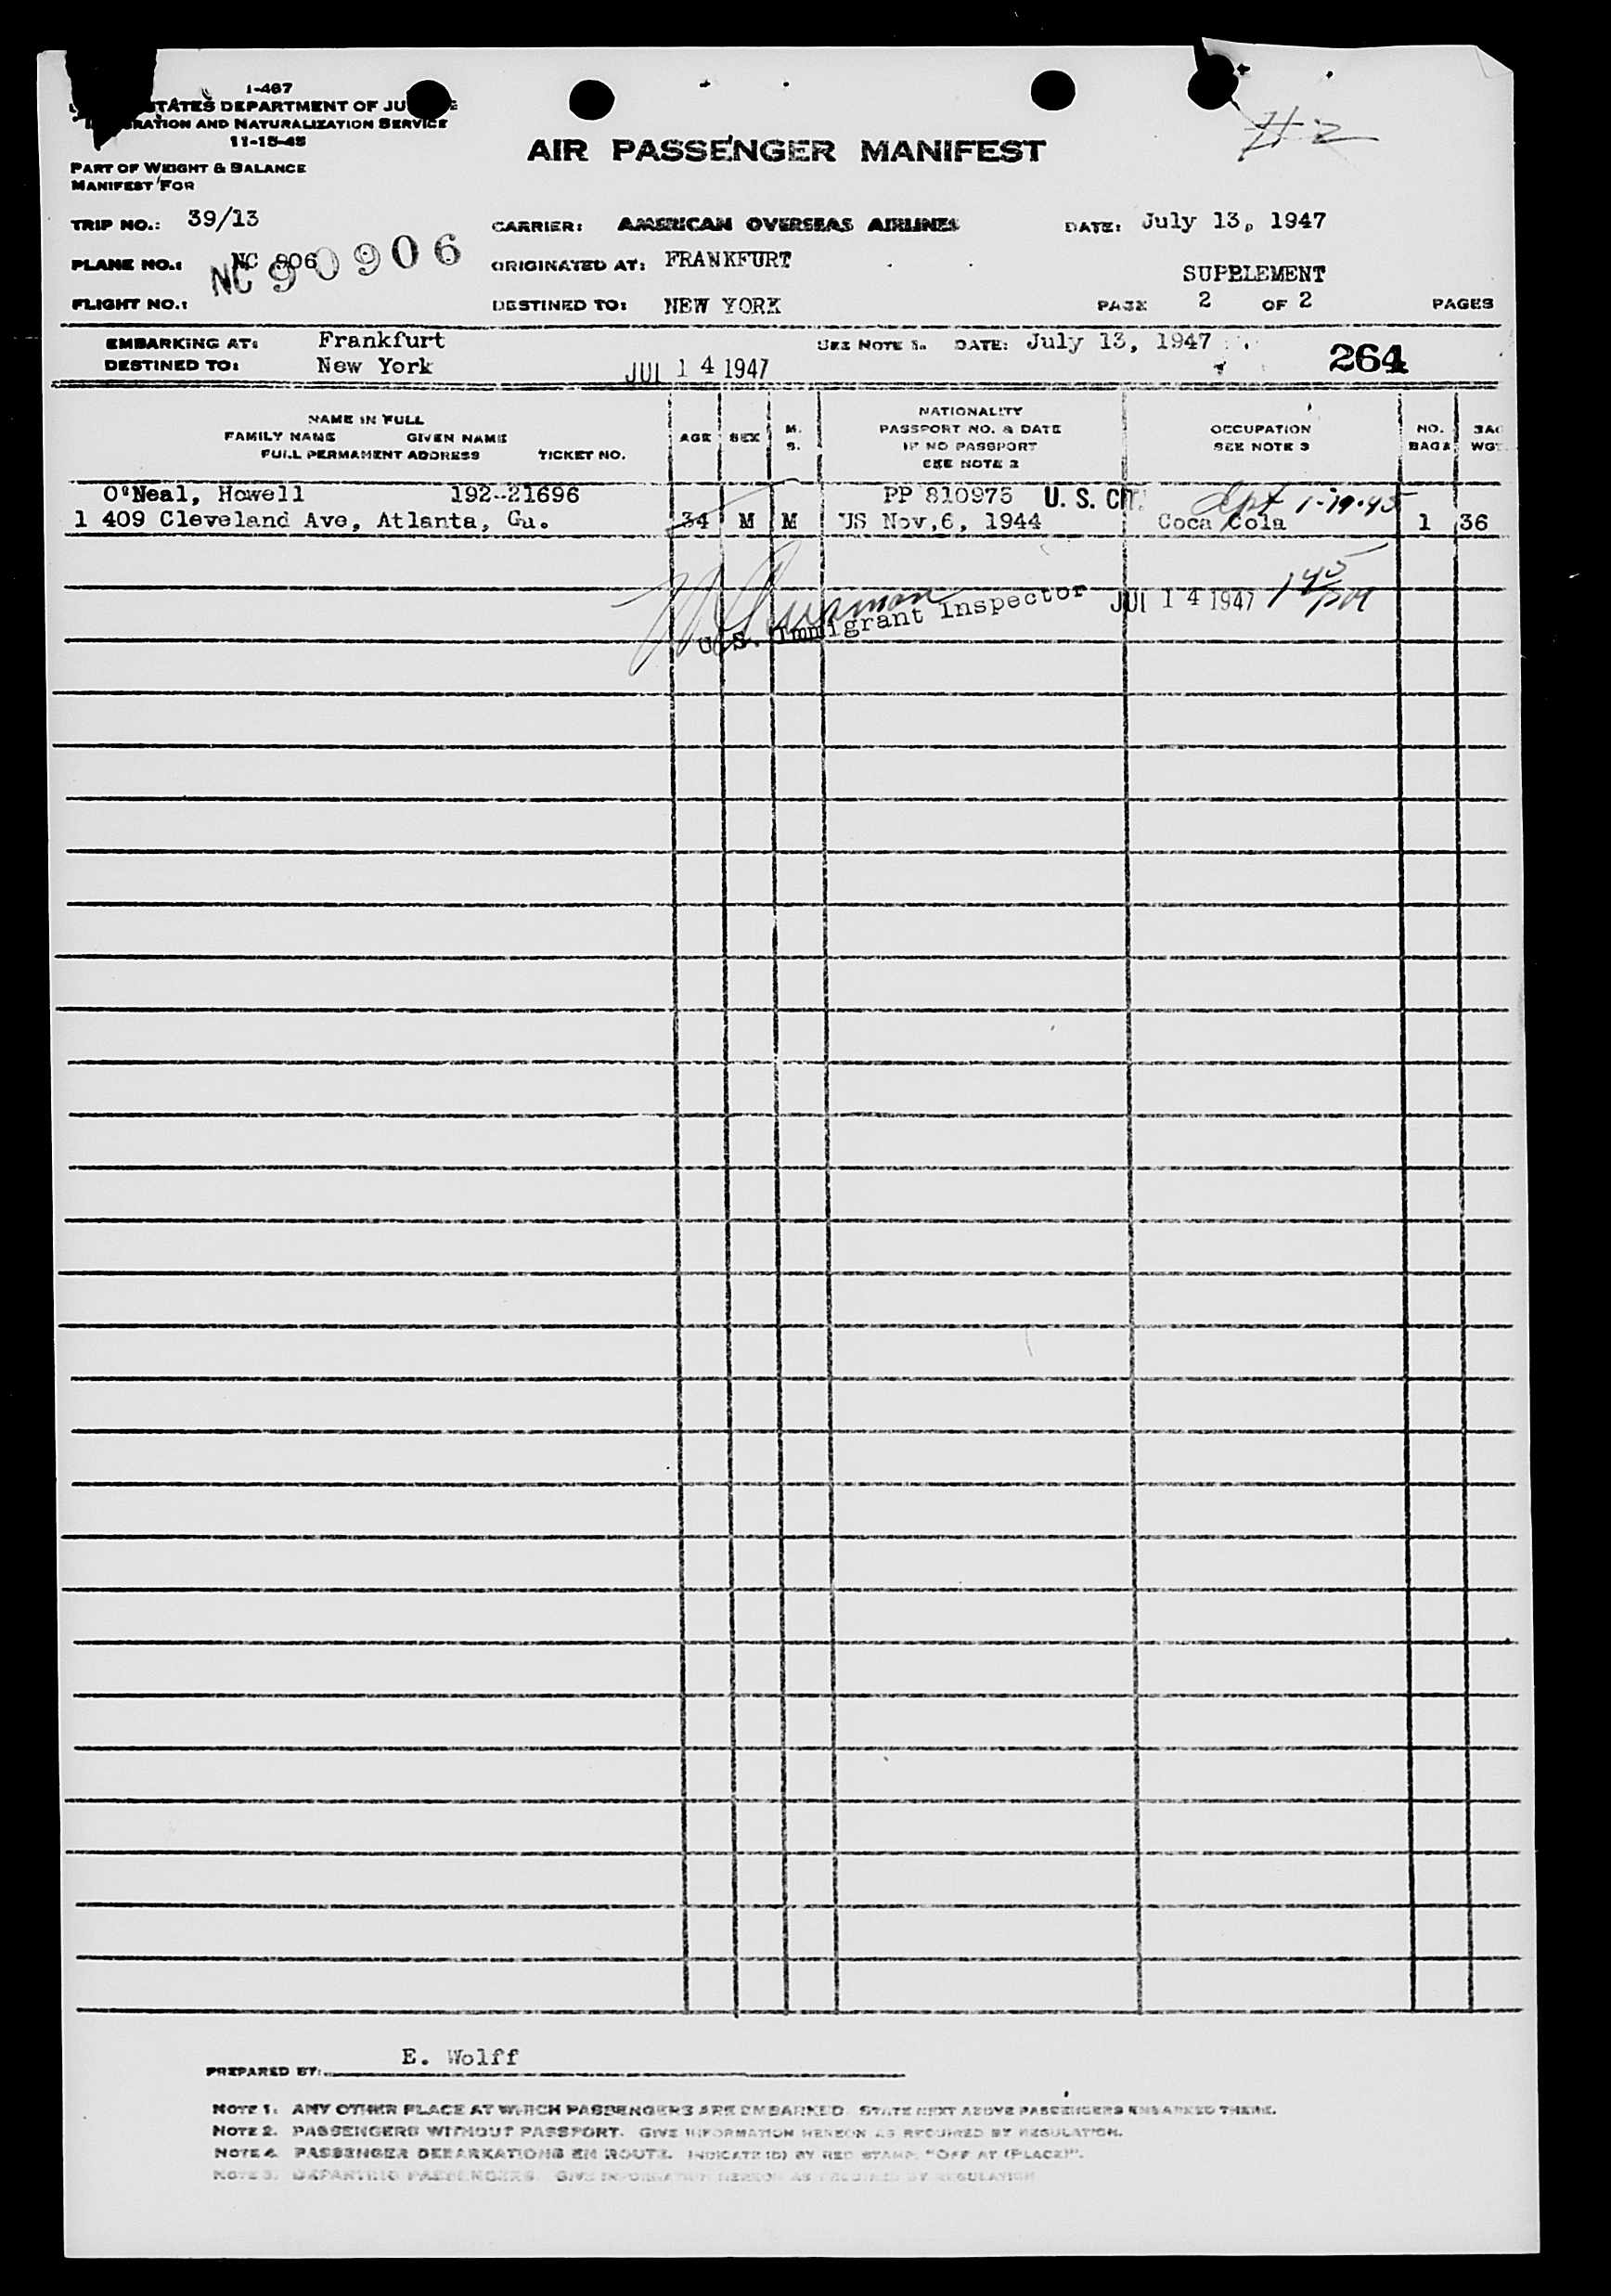 I-467
STATES DEPARTMENT OF JU
RATION AND NATURALIZATION SERVICE
11-15-45
PART OF WEIGHT & BALANCE
MANIFEST FOR
AIR PASSENGER MANIFEST
#2
TRIP NO.: 39/13
CARRIER: AMERICAN OVERSEAS AIRLINES
DATE: July 13, 1947
PLANE NO.: NC 906 NC 90906
ORIGINATED AT: FRANKFURT
SUPPLEMENT
FLIGHT NO.:
DESTINED TO: NEW YORK
PAGE 2 OF 2 PAGES
EMBARKING AT: Frankfurt
SEE NOTE 1. DATE: July 13, 1947
DESTINED TO: New York
JUL 14 1947
264
NAME IN FULL
FAMILY NAME GIVEN NAME
FULL PERMAMENT ADDRESS TICKET NO.
AGE
SEX
M.
S.
NATIONALITY
PASSPORT NO. & DATE
IF NO PASSPORT
SEE NOTE 2
OCCUPATION
SEE NOTE 3
NO.
BAGS
BAG
WGT.
O'Neal, Howell 192-21696 PP 810975 U. S. CIT. dpt 1-19-45
1 409 Cleveland Ave, Atlanta, Ga. 34 M M US Nov,6, 1944 Coca Cola 1 36
U. S. Immigrant Inspector JUL 14 1947 145
PREPARED BY: E. Wolff
NOTE 1. ANY OTHER PLACE AT WHICH PASSENGERS ARE EMBARKED. STATE NEXT ABOVE PASSENGERS EMBARKED THERE.
NOTE 2. PASSENGERS WITHOUT PASSPORT. GIVE INFORMATION HEREON AS REQUIRED BY REGULATION.
NOTE 4. PASSENGER DEBARKATIONS EN ROUTE. INDICATE (D) BY RED STAMP, "OFF AT (PLACE)".
NOTE 3. DEPARTING PASSENGERS. GIVE INFORMATION HEREON AS REQUIRED BY REGULATION